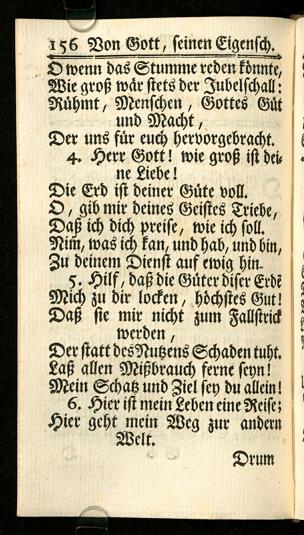 156 Von Gott, seinen Eigensch.
O wenn das Stumme reden könnte,
Wie groß wär stets der Jubelschall:
Rühmt, Menschen, Gottes Güt
und Macht,
Der uns für euch hervorgebracht.
4. Herr Gott! wie groß ist dei-
ne Liebe!
Die Erd ist deiner Güte voll.
O, gib mir deines Geistes Triebe,
Daß ich dich preise, wie ich soll.
Nim̃, was ich kan, und hab, und bin,
Zu deinem Dienst auf ewig hin.
5. Hilf, daß die Güter diser Erdẽ
Mich zu dir locken, höchstes Gut!
Daß sie mir nicht zum Fallstrick
werden,
Der statt des Nutzens Schaden tuht.
Laß allen Mißbrauch ferne seyn!
Mein Schatz und Ziel sey du allein!
6. Hier ist mein Leben eine Reise;
Hier geht mein Weg zur andern
Welt.
Drum